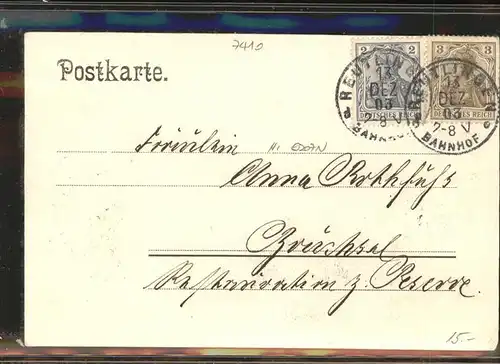 7410
Postkarte.
2 2
DEUTSCHES REICH
3 3
DEUTSCHES REICH
REUTLINGEN
13
DEZ
03
7-8 V
a a
BAHNHOF
REUTLINGEN
13
DEZ
03
7-8 V
a a
BAHNHOF
Fräulein
Anna Rothfuß
Bruchsal
Restauration z. Reserve.
15.-